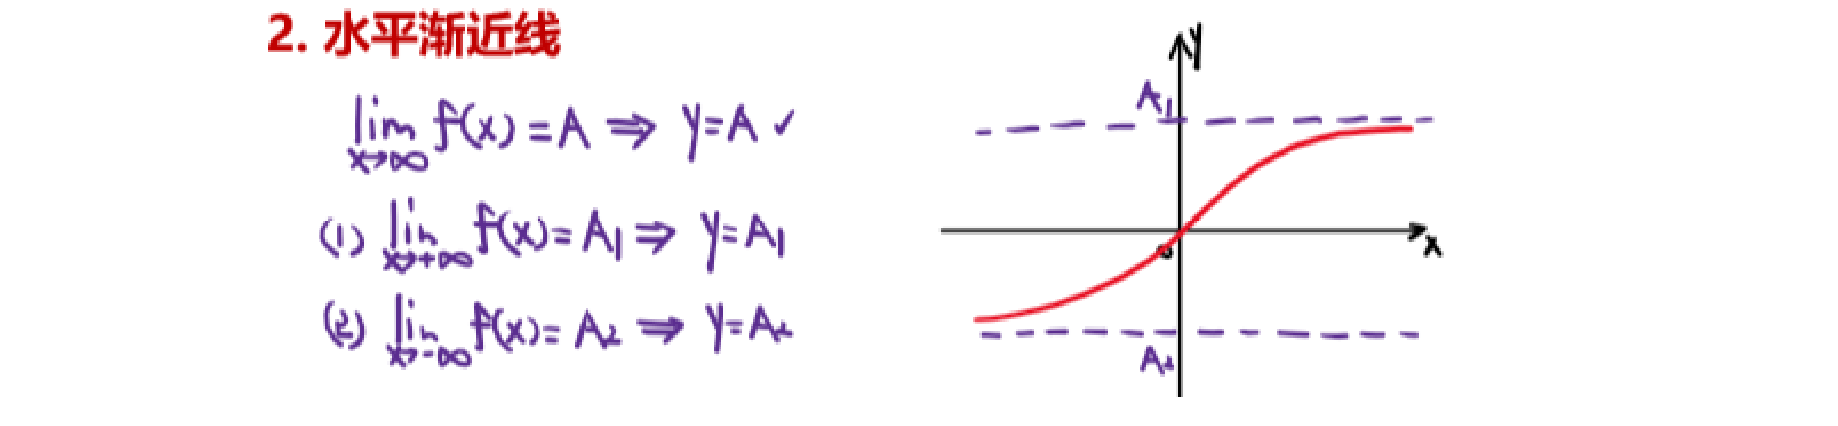 2. 水平渐近线
lim f(x) = A ⇒ y=A ✓
x→∞
(1) lim f(x) = A₁ ⇒ y=A₁
x→+∞
(2) lim f(x) = A₂ ⇒ y=A₂
x→-∞
y
A₁
x
o
A₂